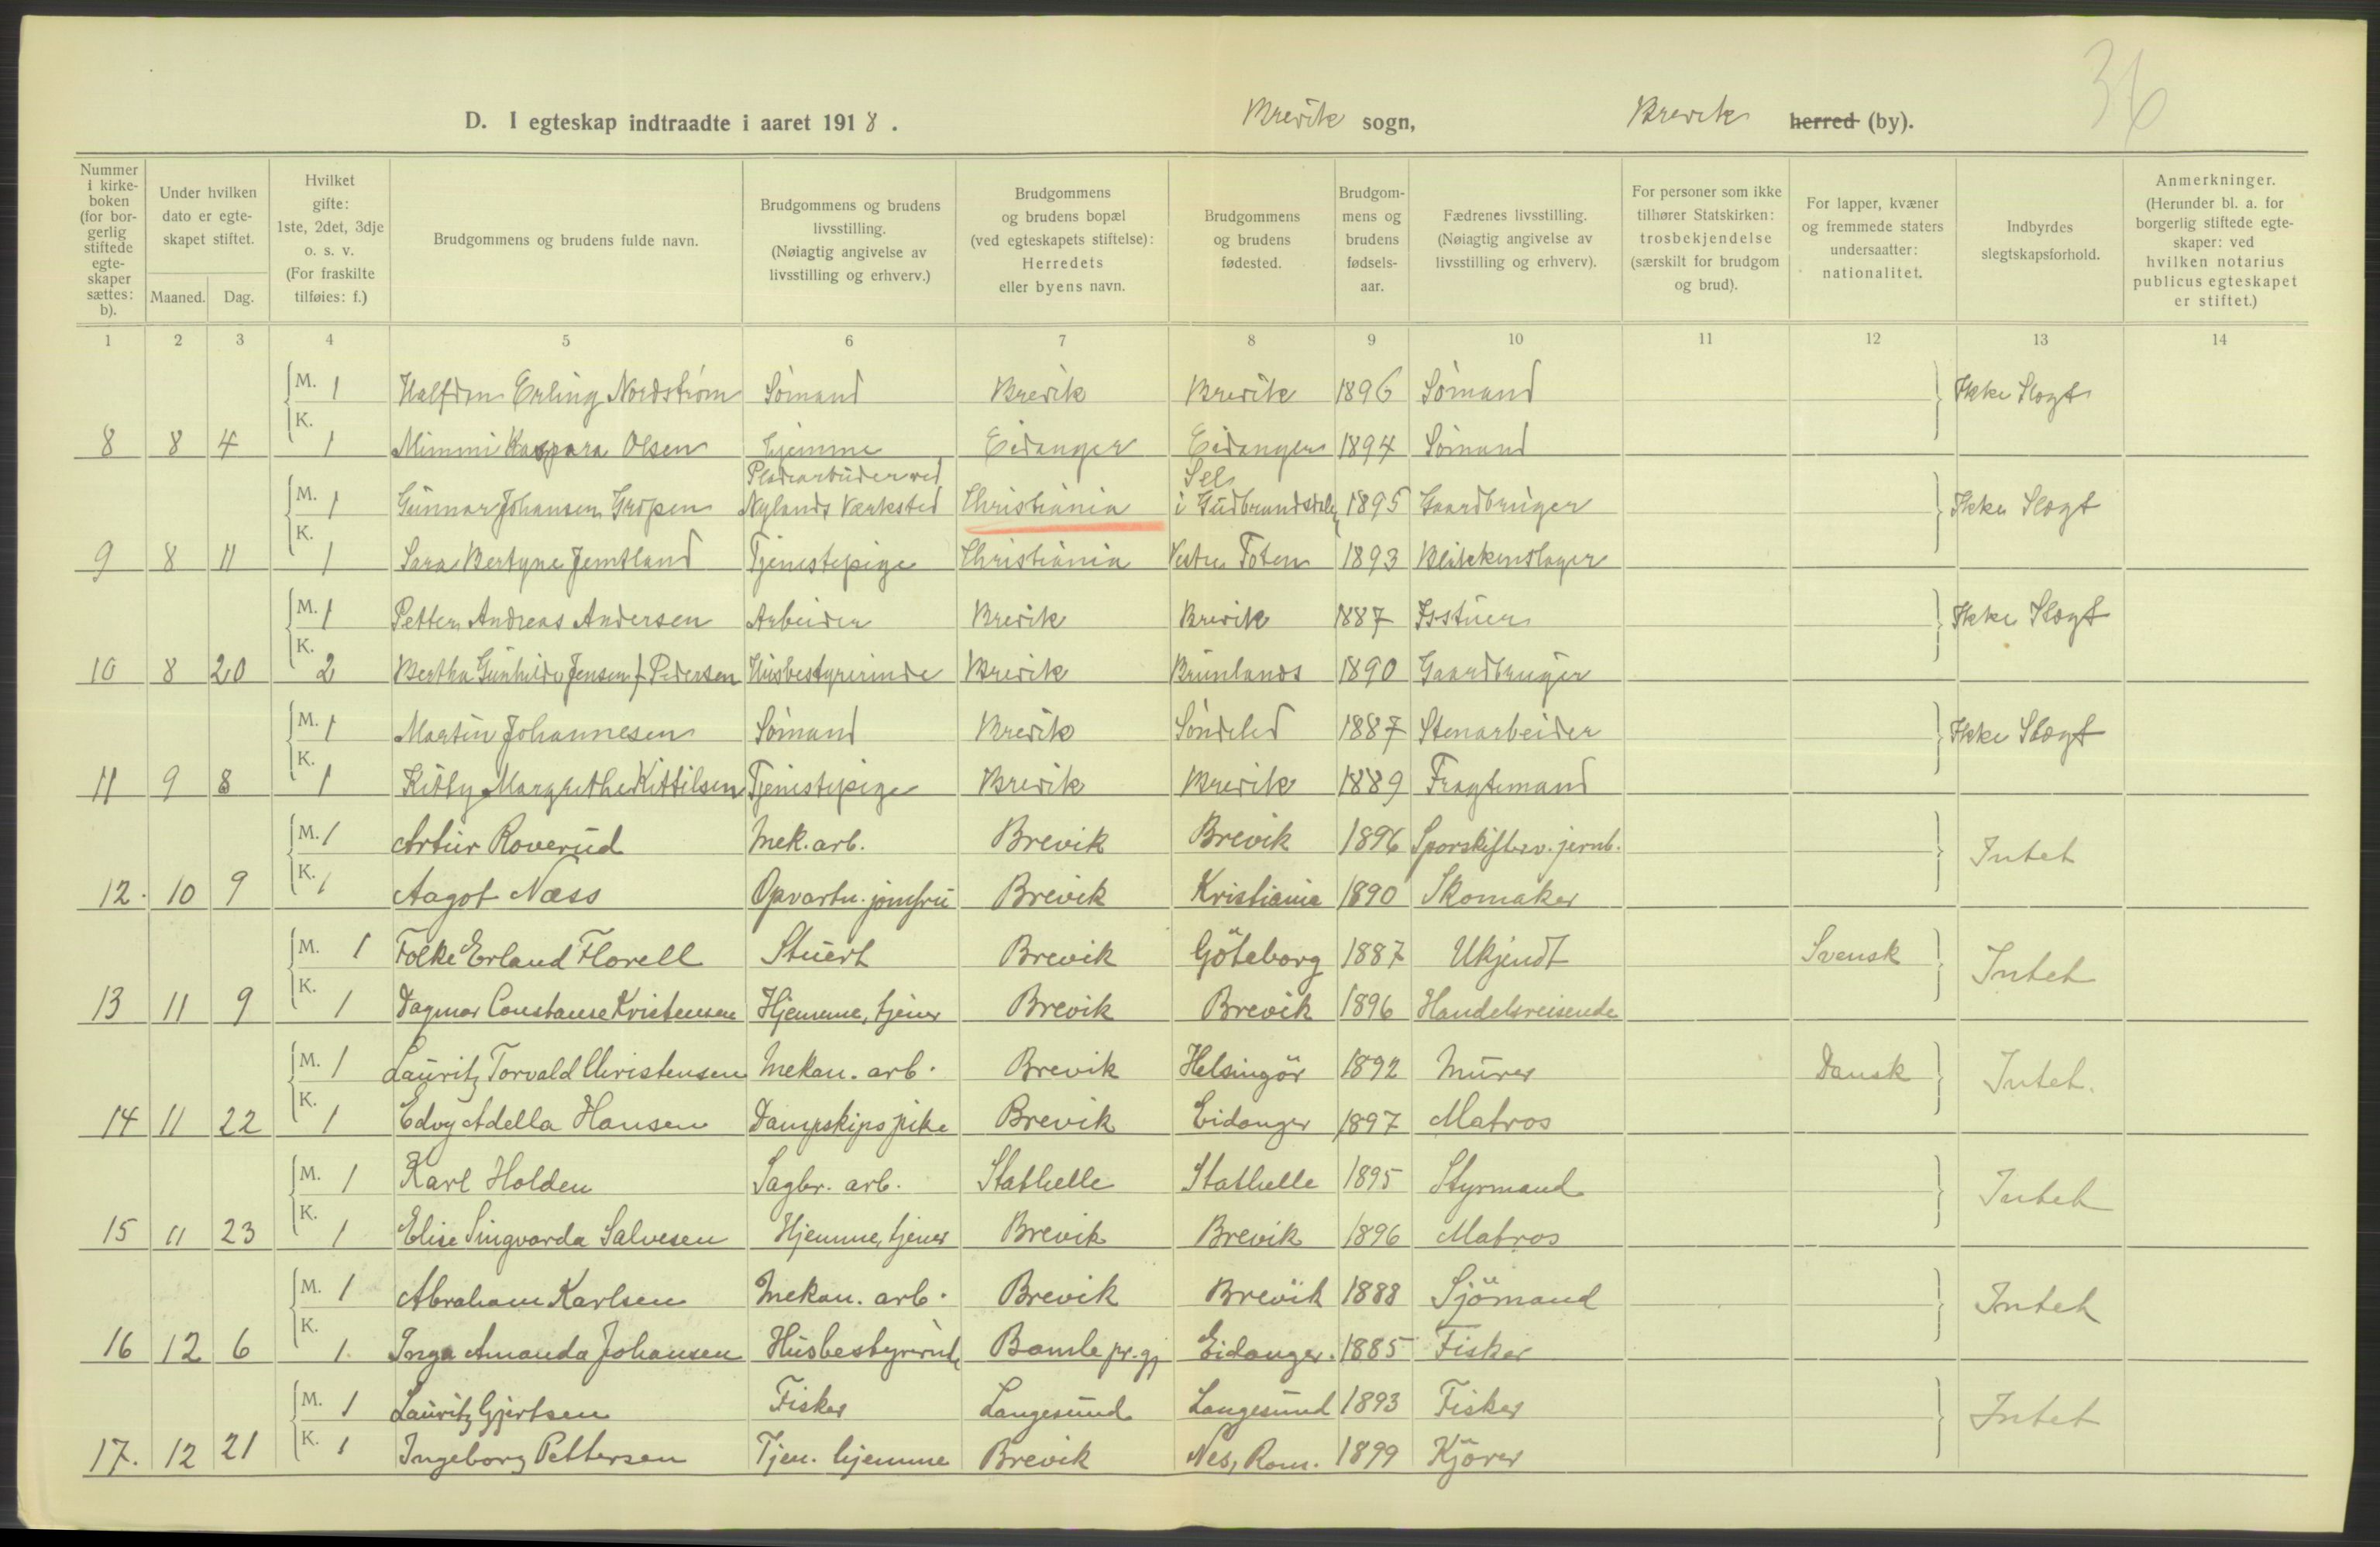 36
D. I egteskap indtraadte i aaret 1918.
Brevik sogn,
Brevik herred (by).
Nummer i kirkeboken (for borgerlig stiftede egteskaper sættes: b).
Under hvilken dato er egteskapet stiftet.
Maaned. Dag.
Hvilket gifte: 1ste, 2det, 3dje o. s. v. (For fraskilte tilføies: f.)
Brudgommens og brudens fulde navn.
Brudgommens og brudens livsstilling. (Nøiagtig angivelse av livsstilling og erhverv.)
Brudgommens og brudens bopæl (ved egteskapets stiftelse): Herredets eller byens navn.
Brudgommens og brudens fødested.
Brudgommens og brudens fødselsaar.
Fædrenes livsstilling. (Nøiagtig angivelse av livsstilling og erhverv).
For personer som ikke tilhører Statskirken: trosbekjendelse (særskilt for brudgom og brud).
For lapper, kvæner og fremmede staters undersaatter: nationalitet.
Indbyrdes slegtskapsforhold.
Anmerkninger. (Herunder bl. a. for borgerlig stiftede egteskaper: ved hvilken notarius publicus egteskapet er stiftet.)
1 2 3 4 5 6 7 8 9 10 11 12 13 14
M. 1 Halfdan Erling Nordstrøm Sömand Brevik Brevik 1896 Sömand Ikke Slegt
8 8 4 K. 1 Mimmi Kaspara Olsen hjemme Eidanger Eidanger 1894 Sömand
M. 1 Gunnar Johansen Gropen Pladearbeider ved Nylands Værksted Christiania Sel i Gudbrandsdalen 1895 Gaardbruger Ikke Slegt
9 8 11 K. 1 Sara Bertyne Jemtland Tjenestepige Christiania Vestre Toten 1893 Blikkenslager
M. 1 Petter Andreas Andersen Arbeider Brevik Brevik 1887 Isstuer Ikke Slegt
10 8 20 K. 2 Bertha Gunhilde Jensen f. Pedersen Husbestyrerinde Brevik Brunlanes 1890 Gaardbruger
M. 1 Martin Johannesen Sömand Brevik Söndeled 1887 Stenarbeider Ikke Slegt
11 9 8 K. 1 Kitty Margrethe Kittilsen Tjenestepige Brevik Brevik 1889 Fragtemand
M. 1 Artur Roverud Mek. arb. Brevik Brevik 1896 Sporskifter v. jernb. Intet
12. 10 9 K. 1 Aagot Næss Opvartn. jomfru Brevik Kristiania 1890 Skomaker
M. 1 Folke Erland Florell Stuert Brevik Göteborg 1887 Ukjendt Svensk Intet
13 11 9 K. 1 Dagmar Constanse Kristensen Hjemme, tjener Brevik Brevik 1896 Handelsreisende
M. 1 Lauritz Torvald Christensen Mekan. arb. Brevik Helsingör 1892 Murer Dansk Intet.
14 11 22 K. 1 Edvy Adella Hansen Dampskipspike Brevik Eidanger 1897 Matros
M. 1 Karl Holden Sagbr. arb. Stathelle Stathelle 1895 Styrmand Intet
15 11 23 K. 1 Elise Singvarda Salvesen Hjemme, tjener Brevik Brevik 1896 Matros
M. 1 Abraham Karlsen Mekan. arb. Brevik Brevik 1888 Sjömand Intet
16 12 6 K. 1. Inga Amanda Johansen Husbestyrerinde Bamle pr.gj Eidanger. 1885 Fisker
M. 1 Lauritz Gjertsen Fisker Langesund Langesund 1893 Fisker Intet
17. 12 21 K. 1 Ingeborg Pettersen Tjen. hjemme Brevik Nes, Rom. 1899 Kjörer